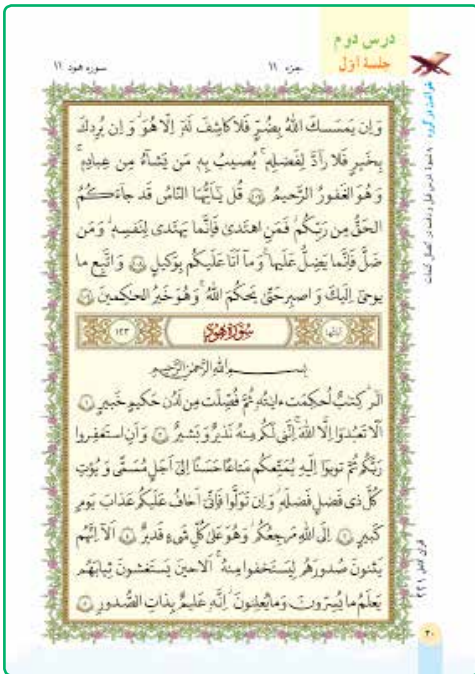 درس دوم
جلسهٔ اوّل
جزء ۱۱
سوره هود ۱۱
وَاِن یَمسَسکَ اللّٰهُ بِضُرٍّ فَلا کاشِفَ لَهٗ اِلّا هُوَ وَ اِن یُرِدکَ
بِخَیرٍ فَلا رآدَّ لِفَضلِهٖ یُصیبُ بِهٖ مَن یَشآءُ مِن عِبادِهٖ
وَ هُوَ الغَفورُ الرَّحیمُ ۱۰۷ قُل یٰاَیُّهَا النّاسُ قَد جآءَکُمُ
الحَقُّ مِن رَبِّکُم فَمَنِ اهتَدیٰ فَاِنَّما یَهتَدی لِنَفسِهٖ وَ مَن
ضَلَّ فَاِنَّما یَضِلُّ عَلَیها وَ مآ اَنَا عَلَیکُم بِوَکیلٍ ۱۰۸ وَ اتَّبِع ما
یوحیٰٓ اِلَیکَ وَ اصبِر حَتّیٰ یَحکُمَ اللّٰهُ وَ هُوَ خَیرُ الحٰکِمینَ ۱۰۹
آیاتها
سُورَةُ هُودٍ
۱۲۳
بِسمِ اللّٰهِ الرَّحمٰنِ الرَّحیمِ
الٓرٰ کِتٰبٌ اُحکِمَت ءایٰتُهٗ ثُمَّ فُصِّلَت مِن لَدُن حَکیمٍ خَبیرٍ ۱
اَلّا تَعبُدوٓا اِلَّا اللّٰهَ اِنَّنی لَکُم مِنهُ نَذیرٌ وَ بَشیرٌ ۲ وَ اَنِ استَغفِروا
رَبَّکُم ثُمَّ توبوٓا اِلَیهِ یُمَتِّعکُم مَتاعًا حَسَنًا اِلیٰٓ اَجَلٍ مُسَمًّی وَ یُؤتِ
کُلَّ ذی فَضلٍ فَضلَهٗ وَ اِن تَوَلَّوا فَاِنّیٓ اَخافُ عَلَیکُم عَذابَ یَومٍ
کَبیرٍ ۳ اِلَی اللّٰهِ مَرجِعُکُم وَ هُوَ عَلیٰ کُلِّ شَیءٍ قَدیرٌ ۴ اَلآ اِنَّهُم
یَثنونَ صُدورَهُم لِیَستَخفوا مِنهُ اَلا حینَ یَستَغشونَ ثِیابَهُم
یَعلَمُ ما یُسِرّونَ وَ ما یُعلِنونَ اِنَّهٗ عَلیمٌ بِذاتِ الصُّدورِ ۵
قرآن کامل ۲۲۱
۲۰